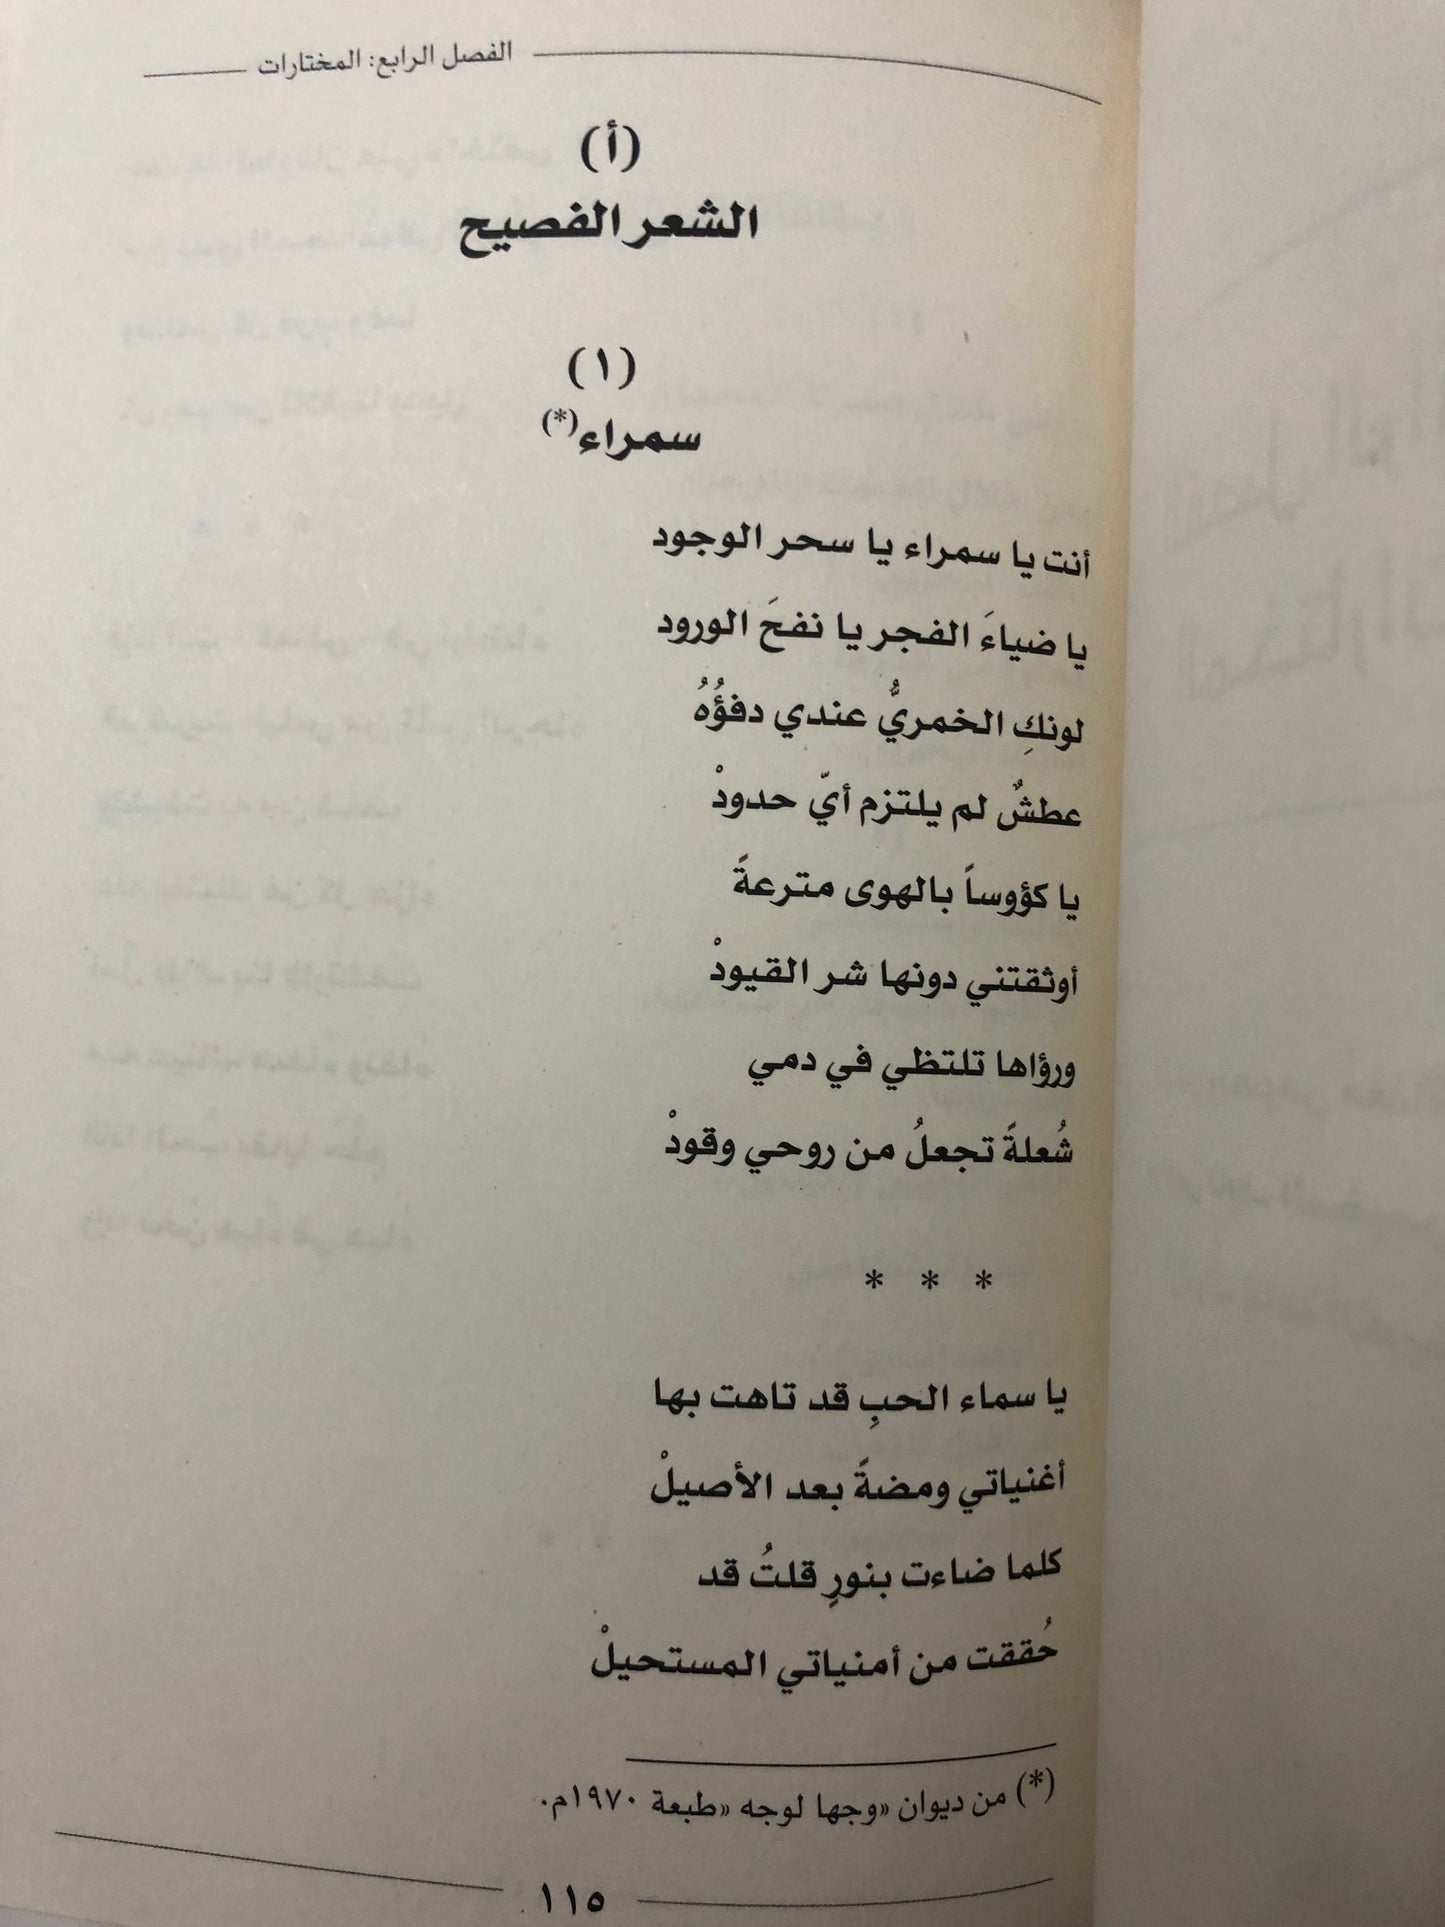 الفصل الرابع: المختارات
(أ)
الشعر الفصيح
(١)
سمراء(*)
أنت يا سمراء يا سحر الوجود
يا ضياءَ الفجر يا نفحَ الورود
لونكِ الخمريُّ عندي دفؤُهُ
عطشٌ لم يلتزم أيّ حدودْ
يا كؤوساً بالهوى مترعةً
أوثقتني دونها شر القيودْ
ورؤاها تلتظي في دمي
شُعلةً تجعلُ من روحي وقودْ
* * *
يا سماء الحبِ قد تاهت بها
أغنياتي ومضةً بعد الأصيلْ
كلما ضاءت بنورٍ قلتُ قد
حُققت من أمنياتي المستحيلْ
(*) من ديوان «وجها لوجه «طبعة ١٩٧٠م.
١١٥